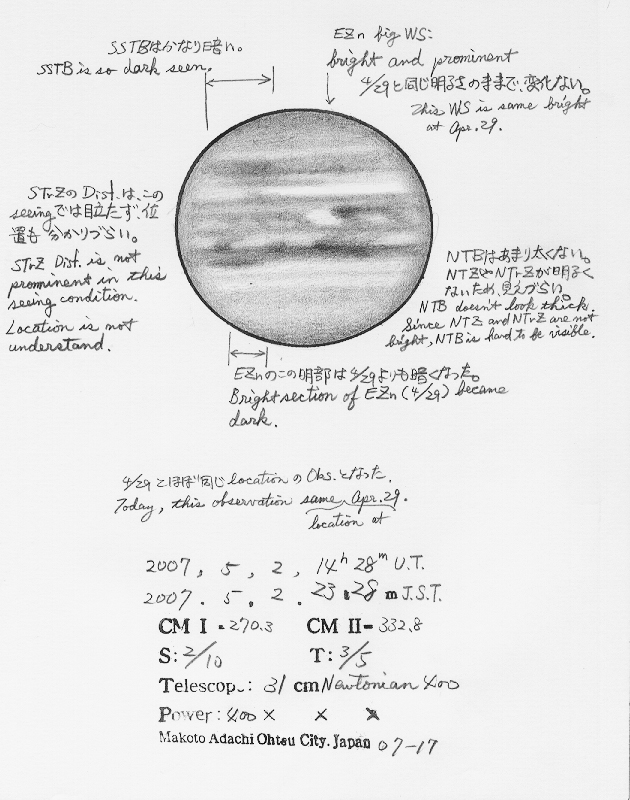 SSTBはかなり暗い。
SSTB is so dark seen.
EZn big WS:
bright and prominent
4/29と同じ明るさのままで、変化ない。
This WS is same bright
at Apr. 29.
STrZのDist.は、この
seeingでは目立たず、位
置も分かりづらい。
STrZ Dist. is not
prominent in this
seeing condition.
Location is not
understand.
NTBはあまり太くない。
NTZやNTrZが明るく
ないため、見えづらい。
NTB doesn't look thick.
Since NTZ and NTrZ are not
bright, NTB is hard to be visible.
EZnのこの明部は4/29よりも暗くなった。
Bright section of EZn (4/29) became
dark.
4/29とほぼ同じlocationのObs.となった.
Today, this observation same Apr. 29.
location at
2007, 5, 2, 14h 28m U.T.
2007. 5. 2. 23. 28 m J.S.T.
CM I - 270.3 CM II- 332.8
S: 2/10 T: 3/5
Telescop.: 31 cm Newtonian 400
Power: 400 × × ×
Makoto Adachi Ohtsu City. Japan 07-17